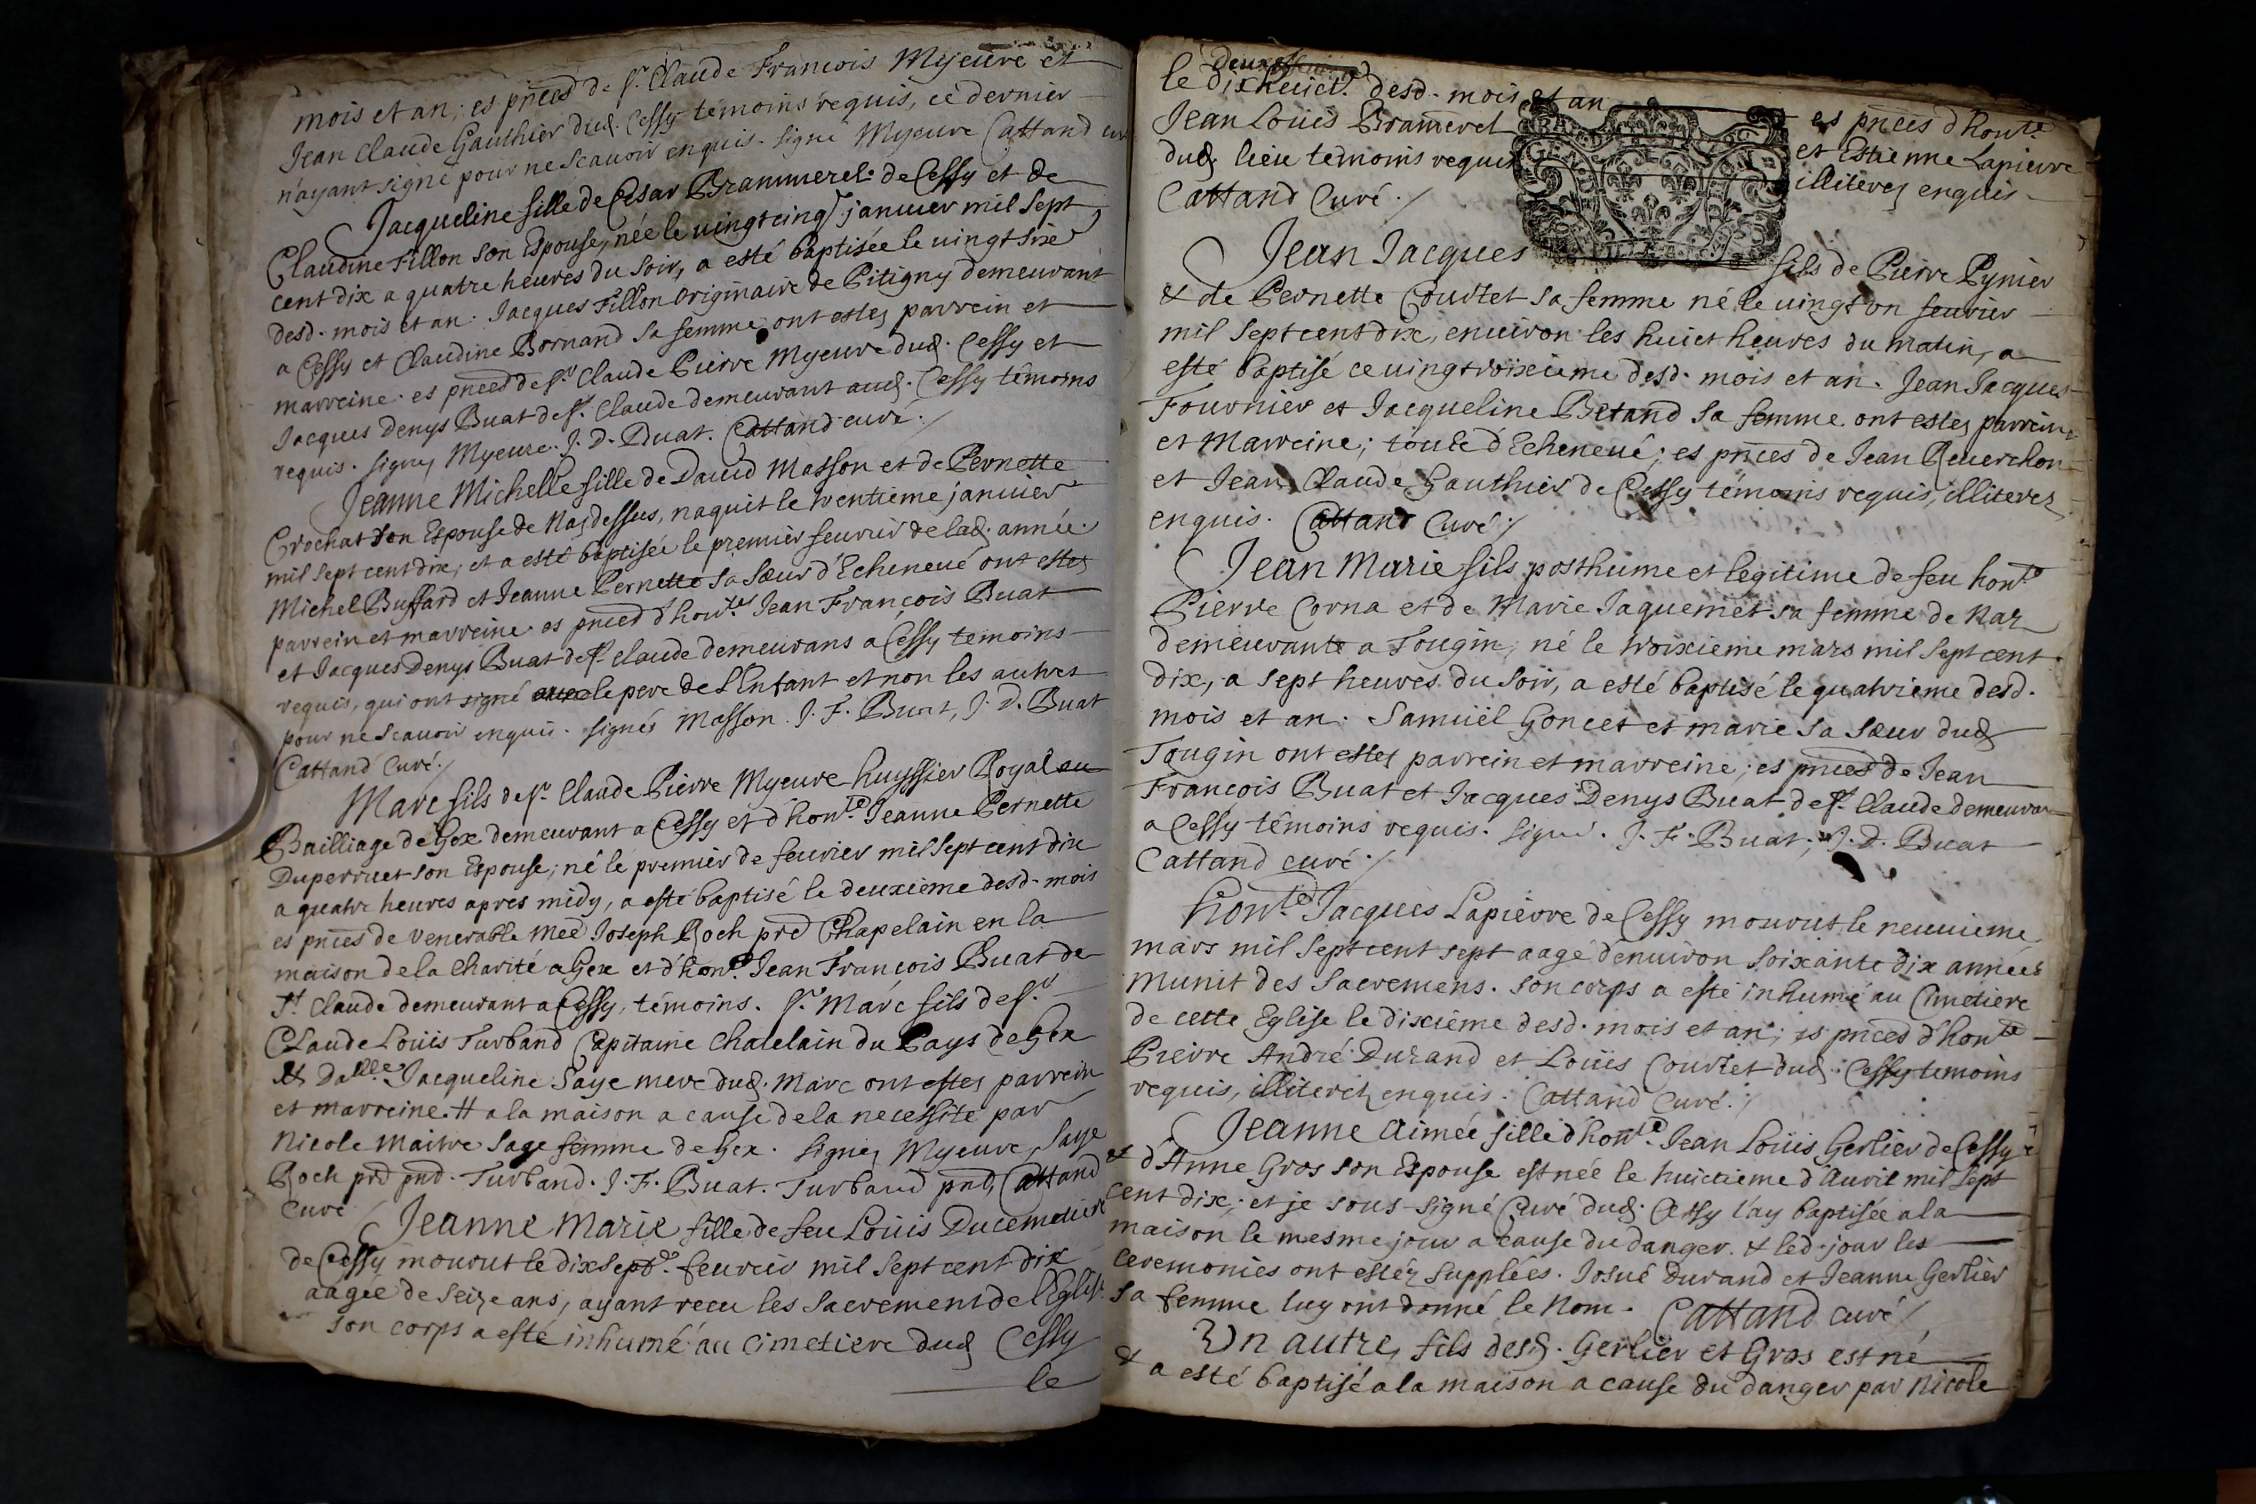 mois et an; es pn̄ces de sr. Claude Francois Myeure et
Jean Claude Gauthier dud. Cessy témoins requis, ce dernier
n'ayant signé pour ne scavoir enquis. signé Myeure Cattand cur
Jacqueline fille de Cesar Brammerel. de Cessy et de
Claudine Fillon son Espouse, née le vingt cinq janvier mil sept
cent dix a quatre heures du soir, a esté baptisée le vingt six
desd. mois et an. Jacques Fillon Originaire de Pitigny demeurant
a Cessy et Claudine Bornand sa femme ont estez parrein et
marreine. es pn̄ces de sr. Claude Pierre Myeure dud. Cessy et
Jacques Denys Buat de st. Claude demeurant aud. Cessy témoins
requis. signez Myeure. J. D. Buat. Cattand curé.
Jeanne Michelle fille de David Masson et de Pernette
Crochat son Espouse de Naz dessus, naquit le trentieme janvier
mil sept cent dix, et a esté baptisée le premier feurier de lad. année.
Michel Buffard et Jeanne Pernette sa sœur d'Echenevé ont estez
parrein et marreine. es pn̄ces d'hon.tes Jean François Buat
et Jacques Denys Buat de st. claude demeurans a Cessy temoins
requis, qui ont signé avec le pere de l'Enfant et non les autres
pour ne scavoir enquis. signés Masson. J. F. Buat, J. D. Buat
Cattand Curé.
Marc fils de sr. Claude Pierre Myeure huyssier Royal au
Bailliage de Gex demeurant a Cessy et d'hon.te Jeanne Pernette
Duperruet son Espouse; né le premier de feurier mil sept cent dix
a quatre heures apres midy, a esté baptisé le deuxieme desd. mois
es pn̄ces de venerable mre Joseph Roch prd Chapelain en la
maison de la Charité a Gex et d'hon.e Jean François Buat de
St. Claude demeurant a Cessy, témoins. sr. Marc fils de sr.
Claude Loüis Turband Capitaine chatelain du Pays de Gex
& Dalle. Jacqueline Saye mere dud. Marc ont estez parrein
et marreine. # a la maison a cause de la necessité par
Nicole maitre Sage femme de Gex. signez Myeure, Saye
Roch prd pnd. Turband. J. F. Buat. Turband pnd, Cattand
Curé
Jeanne Marie fille de feu Loüis Ducemetiere
de Cessy mourut le dix sept.e feurier mil sept cent dix
aagée de seize ans, ayant recu les sacrement de l'Eglise.
son corps a esté inhumé au cimetiere dud Cessy
le
deux
le dixhuict. desd. mois et an es pn̄ces d'hon.te
Jean Loüis Bramerel et Estienne Lapierre
dud. lieu témoins requis illiterez enquis
Cattand Curé.
Jean Jacques fils de Pierre Pynier
& de Pernette Courtet sa femme né le vingt on feurier
mil sept cent dix, enuiron les huict heures du matin, a
esté baptisé ce vingt troixieme desd. mois et an. Jean Jacques
Fournier et Jacqueline Betand sa femme ont estez parrein
et Marreine; touts d'Echenevé; es pn̄ces de Jean Reuerchon
et Jean Claude Gauthier de Cessy témoins requis, illiterez
enquis. Cattand Curé.
Jean Marie fils posthume et legitime de feu hon.te
Pierre Corna et de Marie Jaquemet sa femme de Naz
demeurante a Tougin, né le troixieme mars mil sept cent
dix, a sept heures du soir, a esté baptisé le quatrieme desd.
mois et an. Samüel Goncet et marie sa sœur dud
Tougin ont estez parrein et marreine; es pn̄ces de Jean
François Buat et Jacques Denys Buat de st. Claude demeuran
a Cessy témoins requis. signé. J. F. Buat; J. D. Buat
Cattand curé.
hon.te Jacques Lapierre de Cessy mourut le neuuieme
mars mil sept cent sept aagé denuiron soixante dix années
munit des Sacremens. son corps a esté inhumé au Cimetiere
de cette Eglise le dixieme desd. mois et an; es pn̄ces d'hon.te
Pierre André Durand et Loüis Courtet dud. Cessy temoins
requis, illiterez enquis. Cattand Curé.
Jeanne Aimée fille d'hon.te Jean Loüis Gerlier de Cessy
& d'Anne Gros son Espouse est née le huictieme d'Auril mil sept
cent dix; et je sous-signé Curé dud. Cessy l'ay baptisée a la
maison le mesme jour a cause du danger. & led. jour les
ceremonies ont estéz supplées. Josué Durand et Jeanne Gerlier
sa femme luy ont donné le nom. Cattand curé
Un autre, fils desd. Gerlier et Gros est né
& a esté baptisé a la maison a cause du danger par Nicole